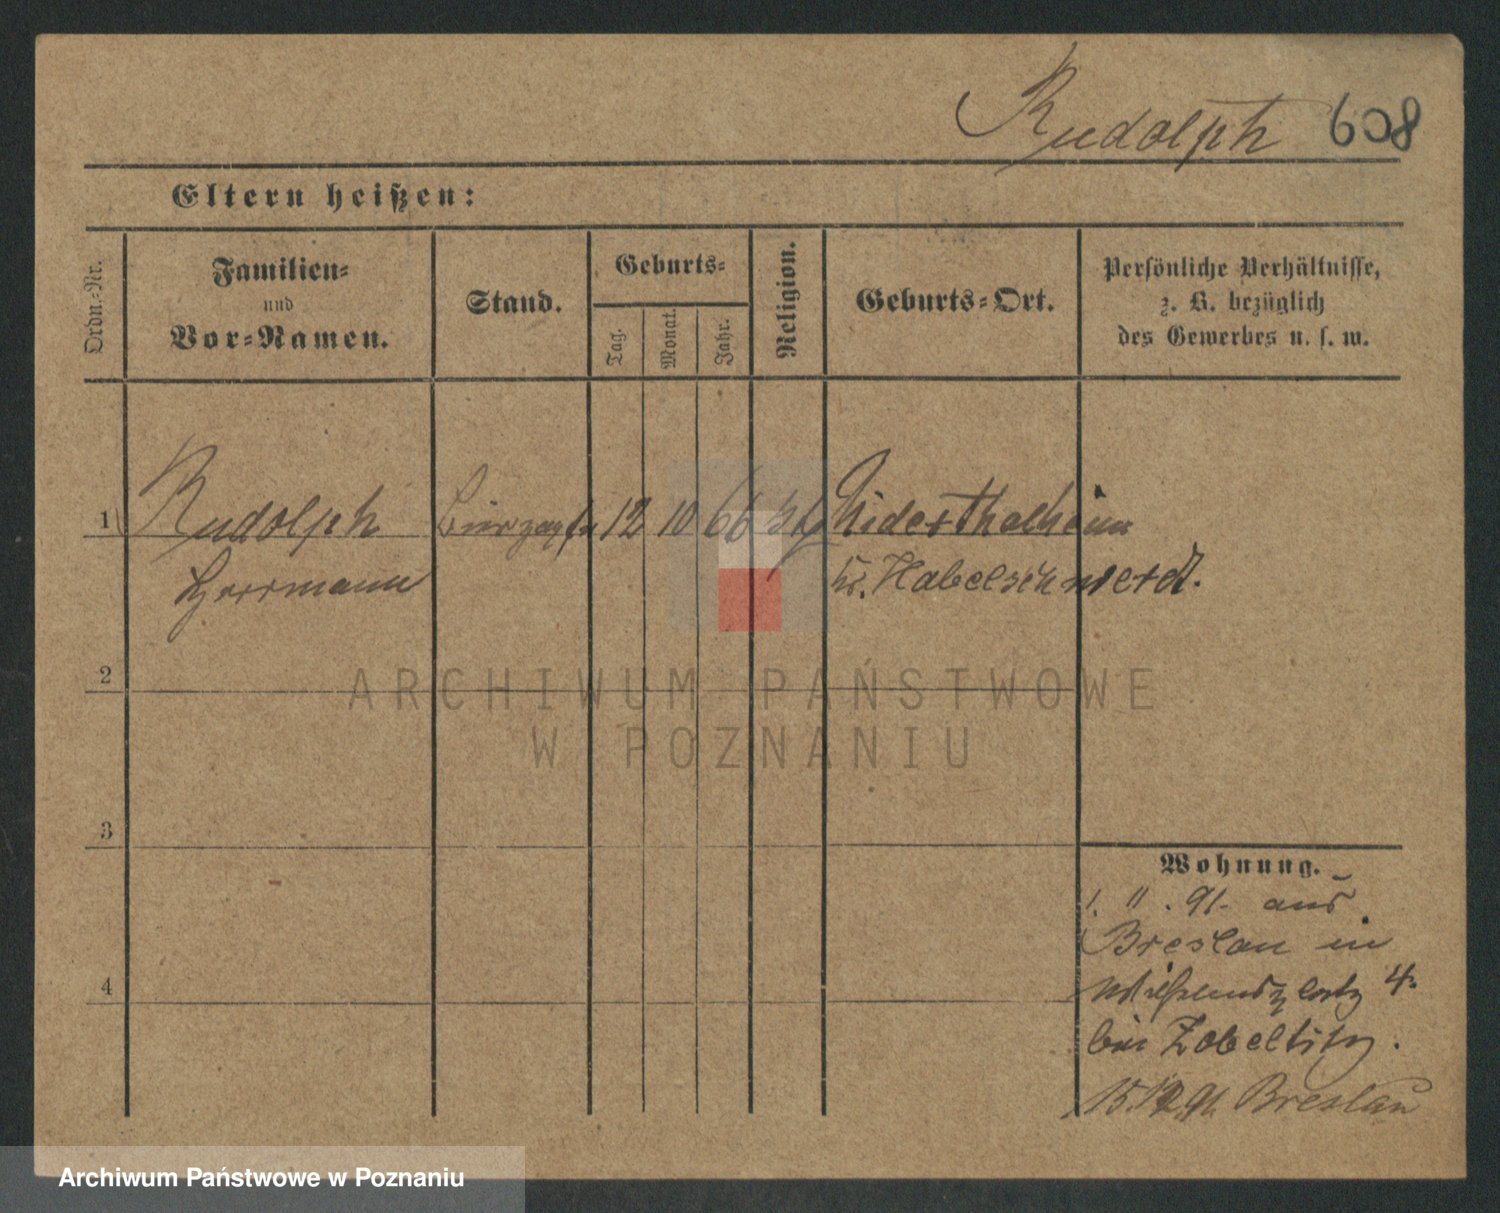 Rudolph 608
Eltern heißen:
Ordn.-Nr.
Familien-
und
Vor-Namen.
Stand.
Geburts-
Tag.
Monat.
Jahr.
Religion.
Geburts-Ort.
Persönliche Verhältnisse,
z. B. bezüglich
des Gewerbes u. s. w.
1 Rudolph Bierzapfer 12 10 66 ktg Niderthalheim
Herrmann Kr. Habelschwerdt.
2
ARCHIWUM PAŃSTWOWE
W POZNANIU
3
Wohnung.
1. 11. 91. aus
Breslau in
4
4.
bei Zobeltitz.
15. 12. 91. Breslau
Archiwum Państwowe w Poznaniu